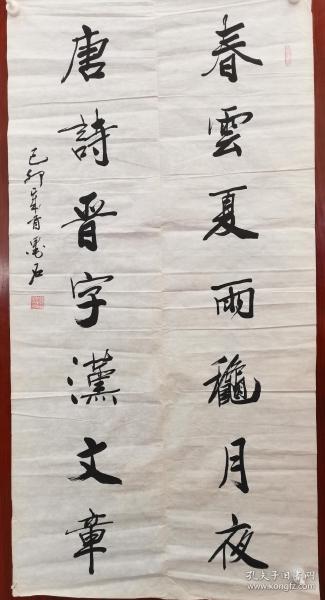 春雲夏雨龝月夜
唐詩晉字漢文章
己卯歲首墨石
孔夫子旧书网
www.kongfz.com